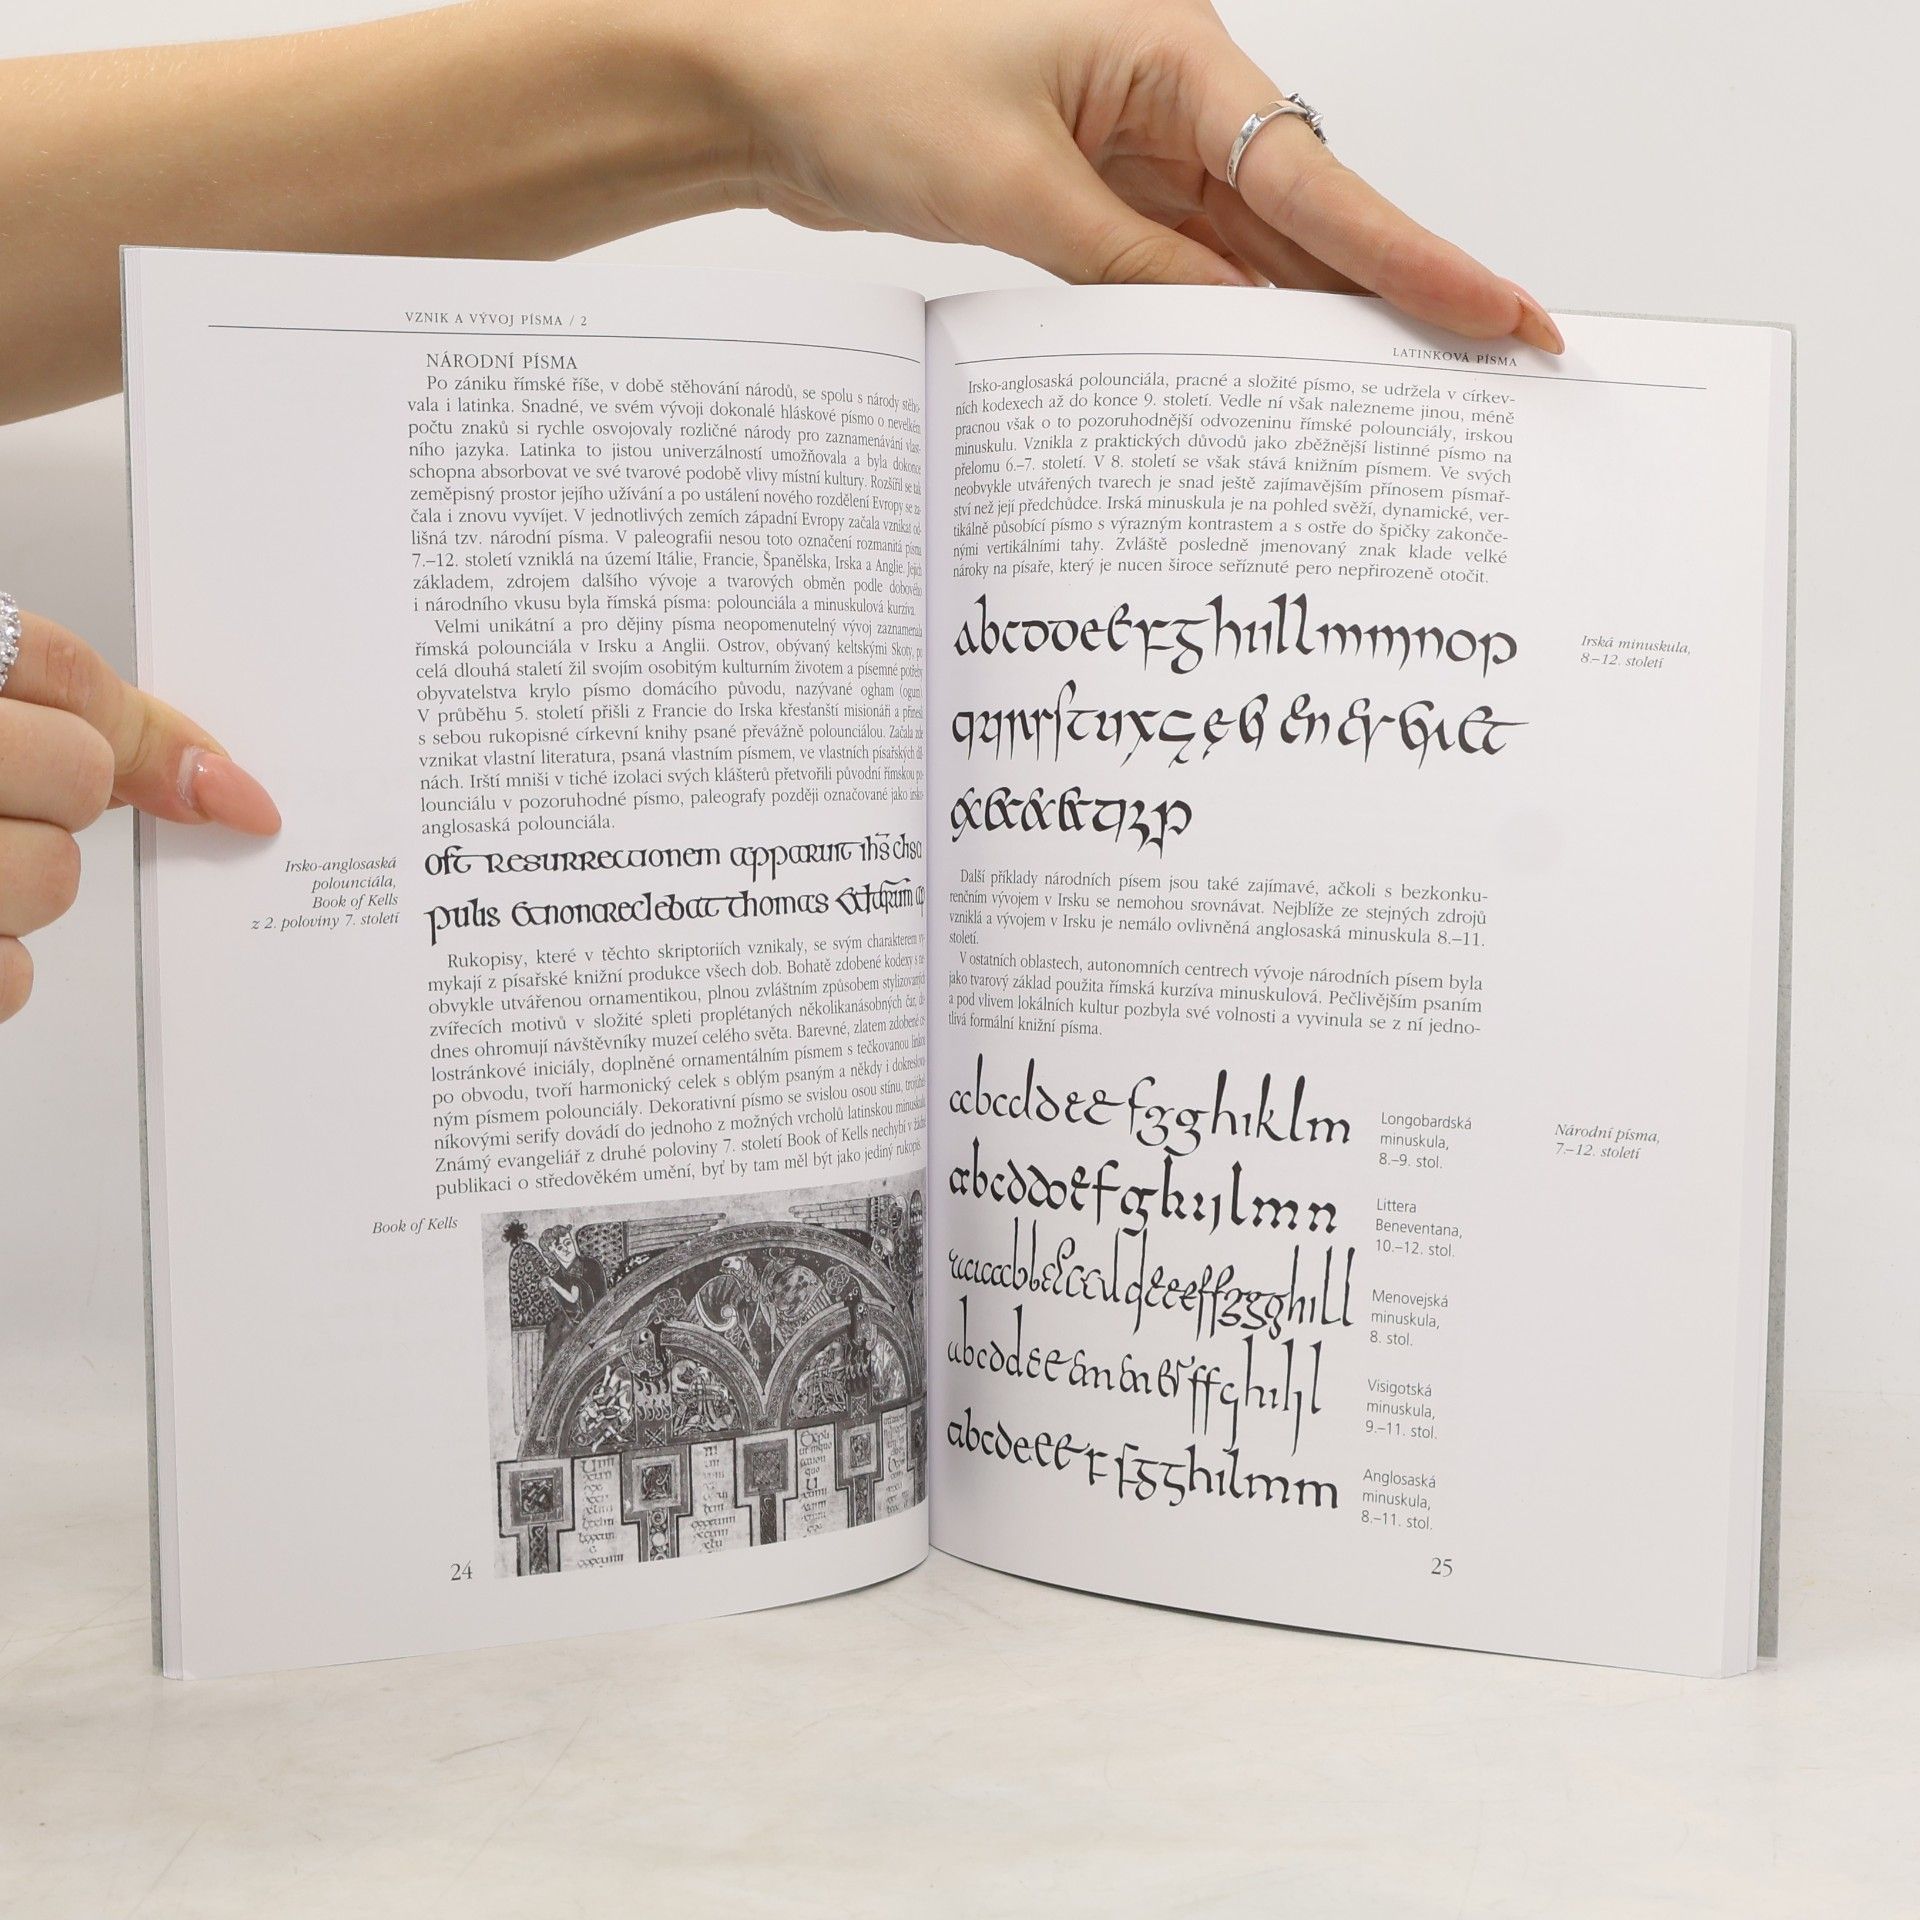 VZNIK A VÝVOJ PÍSMA / 2
NÁRODNÍ PÍSMA
Po zániku římské říše, v době stěhování národů, se spolu s národy stěho-
vala i latinka. Snadné, ve svém vývoji dokonalé hláskové písmo o nevelkém
počtu znaků si rychle osvojovaly rozličné národy pro zaznamenávání vlast-
ního jazyka. Latinka to jistou univerzálností umožňovala a byla dokonce
schopna absorbovat ve své tvarové podobě vlivy místní kultury. Rozšířil se tak
zeměpisný prostor jejího užívání a po ustálení nového rozdělení Evropy se za-
čala i znovu vyvíjet. V jednotlivých zemích západní Evropy začala vznikat od-
lišná tzv. národní písma. V paleografii nesou toto označení rozmanitá písma
7.–12. století vzniklá na území Itálie, Francie, Španělska, Irska a Anglie. Jejich
základem, zdrojem dalšího vývoje a tvarových obměn podle dobového
i národního vkusu byla římská písma: polounciála a minuskulová kurzíva.
Velmi unikátní a pro dějiny písma neopomenutelný vývoj zaznamenala
římská polounciála v Irsku a Anglii. Ostrov, obývaný keltskými Skoty, po
celá dlouhá staletí žil svojím osobitým kulturním životem a písemné potřeby
obyvatelstva krylo písmo domácího původu, nazývané ogham (ogum).
V průběhu 5. století přišli z Francie do Irska křesťanští misionáři a přinesli
s sebou rukopisné církevní knihy psané převážně polounciálou. Začala zde
vznikat vlastní literatura, psaná vlastním písmem, ve vlastních písařských díl-
nách. Irští mniši v tiché izolaci svých klášterů přetvořili původní římskou po-
lounciálu v pozoruhodné písmo, paleografy později označované jako irsko-
anglosaská polounciála.
Irsko-anglosaská
polounciála,
Book of Kells
z 2. poloviny 7. století
oft resurrectionem apparuit ihs
pulis & non crediebat thomas
Rukopisy, které v těchto skriptoriích vznikaly, se svým charakterem vy-
mykají z písařské knižní produkce všech dob. Bohatě zdobené kodexy s ne-
obvykle utvářenou ornamentikou, plnou zvláštním způsobem stylizovaných
zvířecích motivů v složité spleti proplétaných několikanásobných čar,
dnes ohromují návštěvníky muzeí celého světa. Barevné, zlatem zdobené ce-
lostránkové iniciály, doplněné ornamentálním písmem s tečkovanou linkou
po obvodu, tvoří harmonický celek s oblým psaným a někdy i dokreslova-
ným písmem polounciály. Dekorativní písmo se svislou osou stínu, trojúhel-
níkovými serify dovádí do jednoho z možných vrcholů latinskou minuskulu.
Známý evangeliář z druhé poloviny 7. století Book of Kells nechybí v žádné
publikaci o středověkém umění, byť by tam měl být jako jediný rukopis.
Book of Kells
24
LATINKOVÁ PÍSMA
Irsko-anglosaská polounciála, pracné a složité písmo, se udržela v církev-
ních kodexech až do konce 9. století. Vedle ní však nalezneme jinou, méně
pracnou však o to pozoruhodnější odvozeninu římské polounciály, irskou
minuskulu. Vznikla z praktických důvodů jako zběžnější listinné písmo na
přelomu 6.–7. století. V 8. století se však stává knižním písmem. Ve svých
neobvykle utvářených tvarech je snad ještě zajímavějším přínosem písmař-
ství než její předchůdce. Irská minuskula je na pohled svěží, dynamické, ver-
tikálně působící písmo s výrazným kontrastem a s ostře do špičky zakonče-
nými vertikálními tahy. Zvláště posledně jmenovaný znak klade velké
nároky na písaře, který je nucen široce seříznuté pero nepřirozeně otočit.
abcddeefghiillmmnop
Irská minuskula,
8.–12. století
Další příklady národních písem jsou také zajímavé, ačkoli s bezkonku-
renčním vývojem v Irsku se nemohou srovnávat. Nejblíže ze stejných zdrojů
vzniklá a vývojem v Irsku je nemálo ovlivněná anglosaská minuskula 8.–11.
století.
V ostatních oblastech, autonomních centrech vývoje národních písem byla
jako tvarový základ použita římská kurzíva minuskulová. Pečlivějším psaním
a pod vlivem lokálních kultur pozbyla své volnosti a vyvinula se z ní jedno-
tlivá formální knižní písma.
Longobardská
minuskula,
8.–9. stol.
Národní písma,
7.–12. století
Littera
Beneventana,
10.–12. stol.
Menovejská
minuskula,
8. stol.
Visigotská
minuskula,
9.–11. stol.
Anglosaská
minuskula,
8.–11. stol.
25